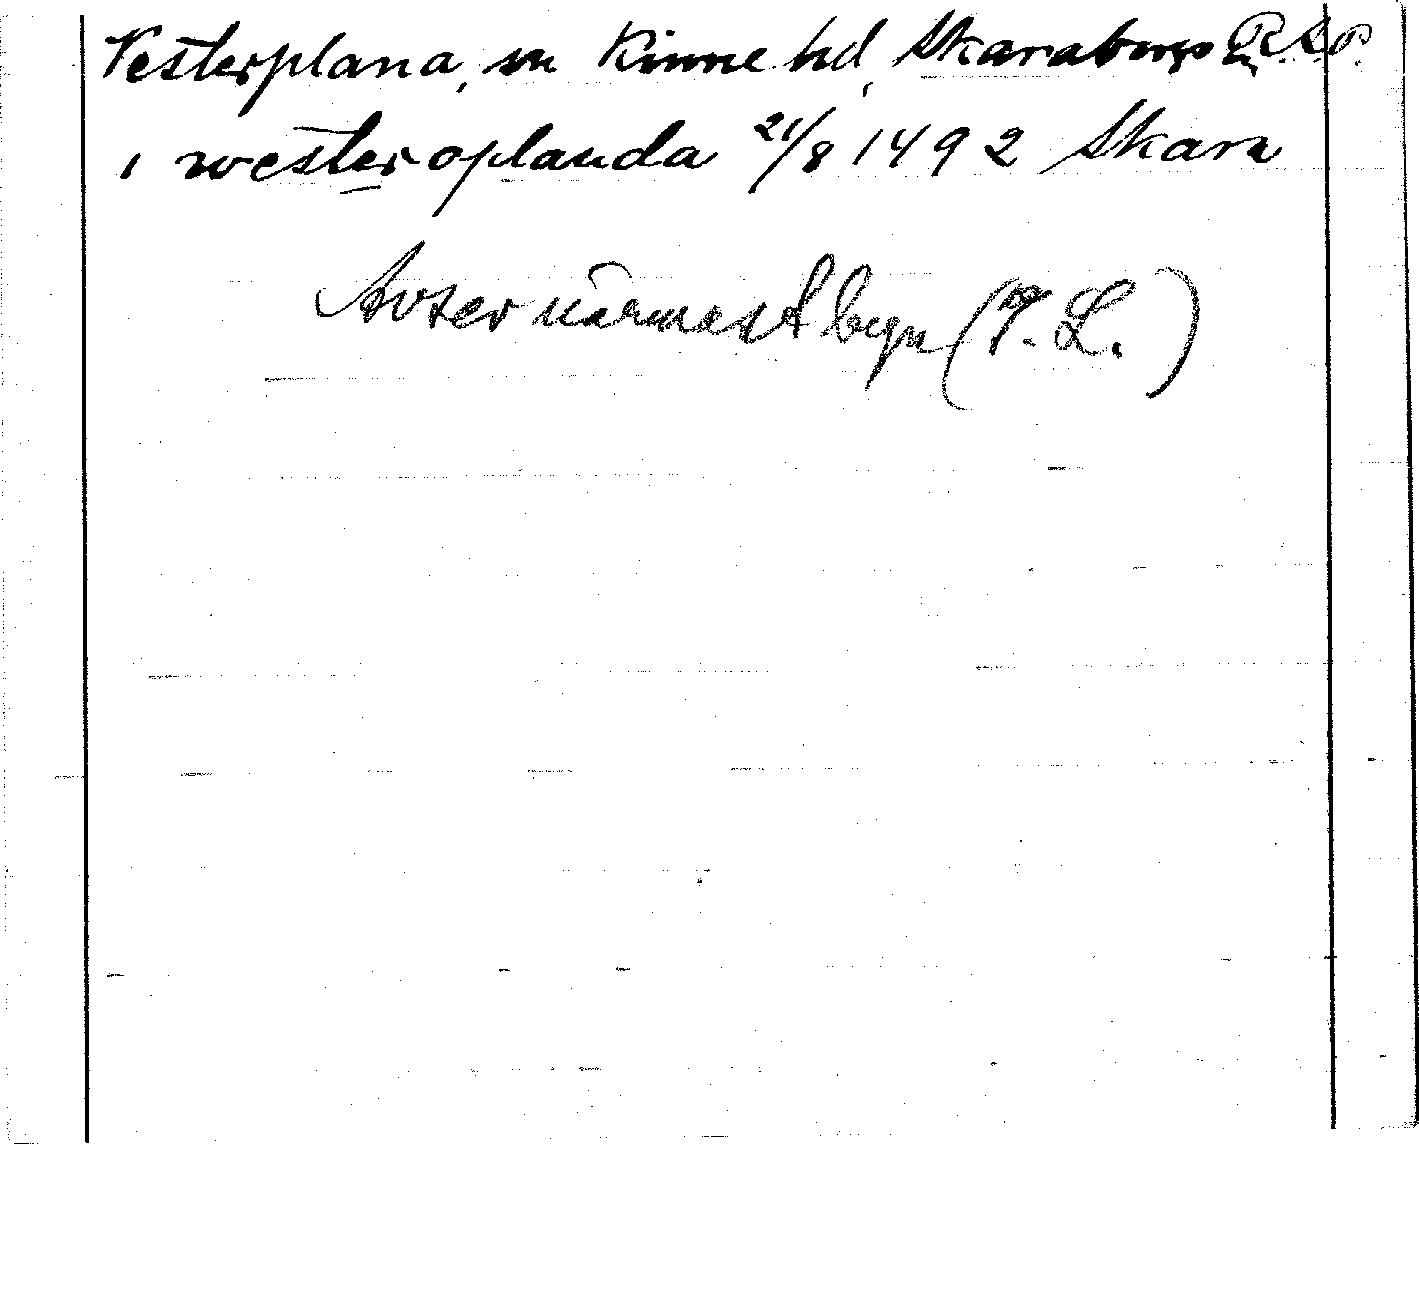 Vesterplana, sn Kinne hd, Skaraborgs R.A.P.
i westeroplanda 21/8 1492 Skara
Avser närmast byn (I. L.)